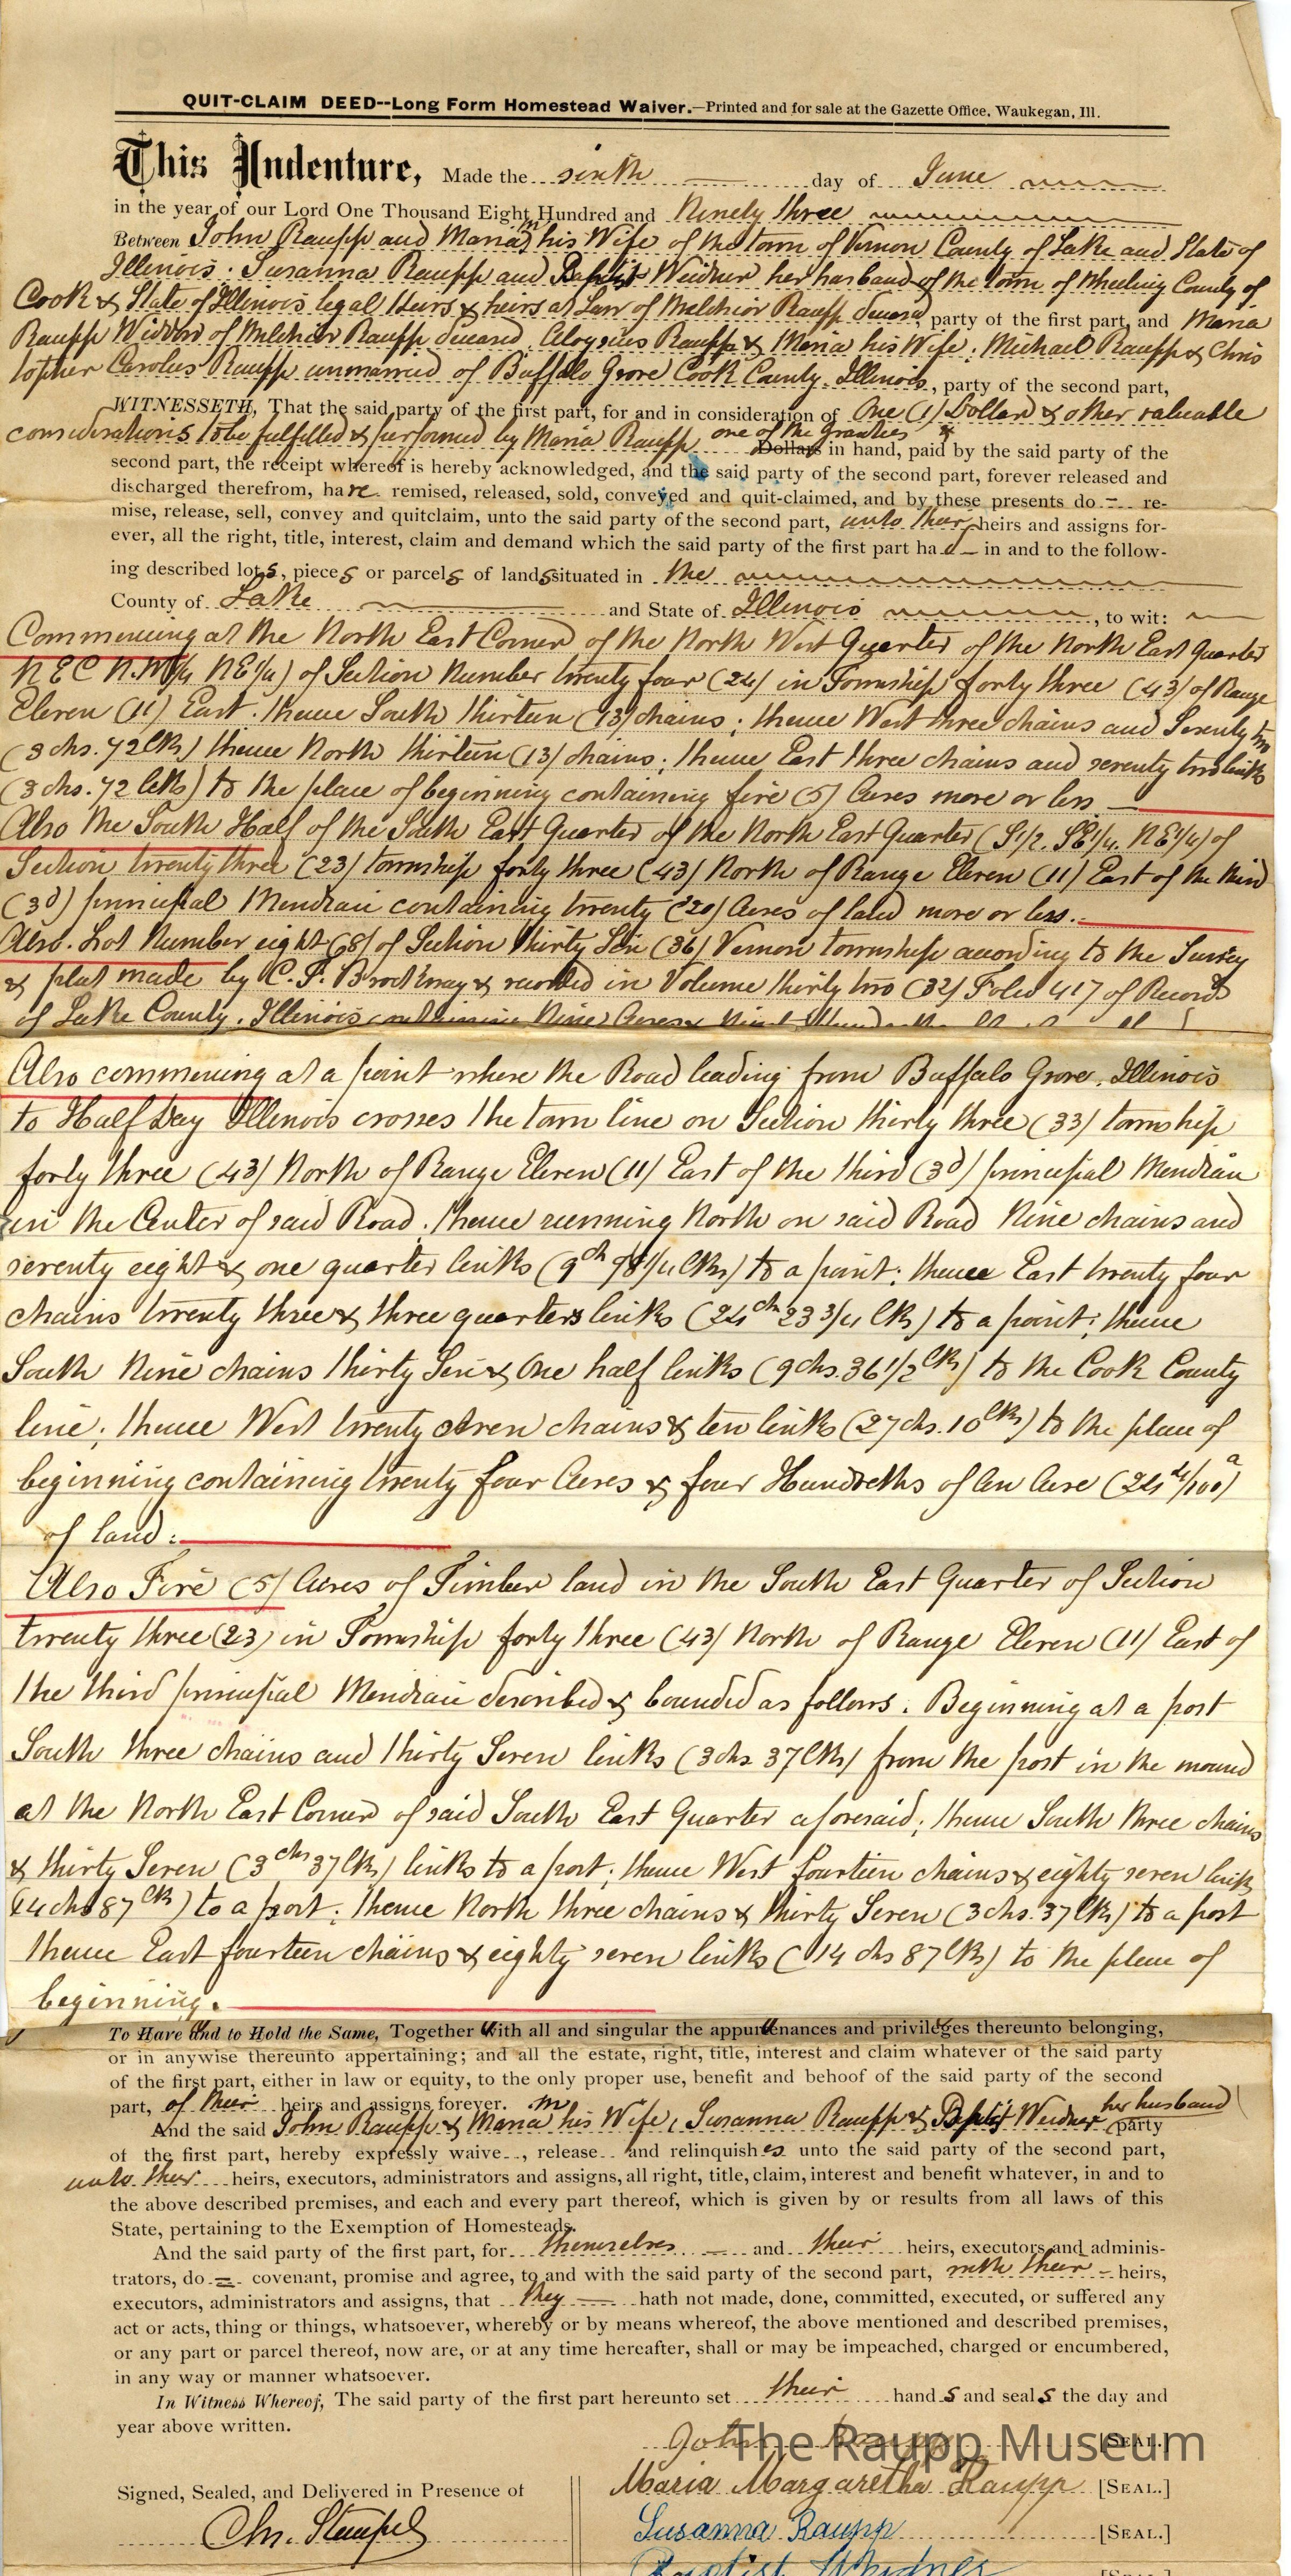 QUIT-CLAIM DEED--Long Form Homestead Waiver.—Printed and for sale at the Gazette Office, Waukegan, Ill.
This Indenture, Made the sixth day of June
in the year of our Lord One Thousand Eight Hundred and Ninety three
Between John Raupp and Maria M his Wife of the town of Vernon County of Lake and State of
Illinois. Susanna Raupp and Baptist Weidner her husband of the town of Wheeling County of
Cook & State of Illinois legal Heirs & heirs at Law of Melchior Raupp deceased, party of the first part, and Maria
Raupp Widdow of Melchior Raupp deceased, Aloysius Raupp & Maria his Wife; Michael Raupp & Chris
topher Carolus Raupp unmarried of Buffalo Grove Cook County. Illinois, party of the second part,
WITNESSETH, That the said party of the first part, for and in consideration of One (1) Dollar & other valuable
considerations to be fulfilled & performed by Maria Raupp one of the Grantees Dollars in hand, paid by the said party of the
second part, the receipt whereof is hereby acknowledged, and the said party of the second part, forever released and
discharged therefrom, have remised, released, sold, conveyed and quit-claimed, and by these presents do re-
mise, release, sell, convey and quitclaim, unto the said party of the second part, unto their heirs and assigns for-
ever, all the right, title, interest, claim and demand which the said party of the first part had in and to the follow-
ing described lots, pieces or parcels of lands situated in the
County of Lake and State of Illinois, to wit:
Commencing at the North East Corner of the North West Quarter of the North East Quarter
N E C N.W1/4 NE1/4) of Section Number twenty four (24) in Township forty three (43) of Range
Eleven (11) East. thence South thirteen (13) chains; thence West three chains and Seventy two
(3 chs. 72 lks) thence North thirteen (13) chains; thence East three chains and seventy two links
(3 chs. 72 lks) to the place of beginning containing five (5) Acres more or less
Also the South Half of the South East Quarter of the North East Quarter (S1/2. SE1/4. NE1/4) of
Section twenty three (23) township forty three (43) North of Range Eleven (11) East of the third
(3d) principal Meridian containing twenty (20) Acres of land more or less.
Also. Lot Number eight (8) of Section thirty Six (36) Vernon township according to the Survey
& plat made by C. F. Brockway & recorded in Volume thirty two (32) Folio 417 of Records
of Lake County. Illinois containing Nine Acres
Also commencing at a point where the Road leading from Buffalo Grove. Illinois
to Half Day Illinois crosses the town line on Section thirty three (33) township
forty three (43) North of Range Eleven (11) East of the third (3d) principal Meridian
in the Center of said Road; thence running North on said Road Nine chains and
seventy eight & one quarter links (9ch 78 1/4 lks) to a point; thence East twenty four
chains twenty three & three quarters links (24ch 23 3/4 lks) to a point; thence
South Nine chains thirty Six & One half links (9chs. 36 1/2 lks) to the Cook County
line; thence West twenty seven chains & ten links (27 chs. 10 lks) to the place of
beginning containing twenty four Acres & four Hundreths of an Acre (24 4/100 a)
of land:
Also Five (5) Acres of Timber land in the South East Quarter of Section
twenty three (23) in Township forty three (43) North of Range Eleven (11) East of
the third principal Meridian described & bounded as follows. Beginning at a post
South three chains and thirty Seven links (3 chs 37 lks) from the post in the mound
at the North East Corner of said South East Quarter aforesaid; thence South three chains
& thirty Seven (3 chs 37 lks) links to a post; thence West fourteen chains & eighty seven links
(14 chs 87 lks) to a post; thence North three chains & thirty Seven (3 chs. 37 lks) to a post
thence East fourteen chains & eighty seven links (14 chs 87 lks) to the place of
beginning.
To Have and to Hold the Same, Together with all and singular the appurtenances and privileges thereunto belonging,
or in anywise thereunto appertaining; and all the estate, right, title, interest and claim whatever of the said party
of the first part, either in law or equity, to the only proper use, benefit and behoof of the said party of the second
part, of their heirs and assigns forever.
And the said John Raupp & Maria M his Wife, Susanna Raupp & Baptist Weidner her husband party
of the first part, hereby expressly waive, release and relinquishes unto the said party of the second part,
unto their heirs, executors, administrators and assigns, all right, title, claim, interest and benefit whatever, in and to
the above described premises, and each and every part thereof, which is given by or results from all laws of this
State, pertaining to the Exemption of Homesteads.
And the said party of the first part, for themselves and their heirs, executors and adminis-
trators, do covenant, promise and agree, to and with the said party of the second part, with their heirs,
executors, administrators and assigns, that they hath not made, done, committed, executed, or suffered any
act or acts, thing or things, whatsoever, whereby or by means whereof, the above mentioned and described premises,
or any part or parcel thereof, now are, or at any time hereafter, shall or may be impeached, charged or encumbered,
in any way or manner whatsoever.
In Witness Whereof, The said party of the first part hereunto set their hands and seals the day and
year above written.
John Raupp [SEAL.]
The Raupp Museum
Signed, Sealed, and Delivered in Presence of
Maria Margaretha Raupp [SEAL.]
Chr. Stempel
Susanna Raupp [SEAL.]
Baptist Weidner